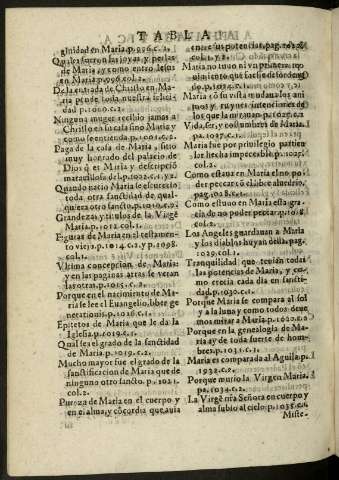 TABLA
ginidad en Maria p. 996. c. 1.
Quales fueron las joyas y perlas
de Maria, y como entro Iesus
en Maria p. 996. col. 2.
De la entrada de Christo en Ma
ria pende toda nuestra felici
dad p. 1000. c. 1.
Ninguna muger recibio jamas a
Christo en su casa sino Maria y
como se entienda p. 1001. c. 2.
Paga de la casa de Maria, sitio
muy honrado del palacio de
Dios q̃ es Maria y descripcio
marauillosa del p. 1002. c. 1. y 2.
Quando nacio Maria se escurecio
toda otra sanctidad de qual-
quiera otro sancto p. 1010. c. 2.
Grandezas y titulos de la Virgẽ
Maria p. 1012. col. 1.
Figuras de Maria en el testamen-
to viejo p. 1014. c. 2. y p. 1098.
col. 1.
Vltima concepcion de Maria: y
en las paginas atras se veran
las otras p. 1015. c. 2.
Porque en el nacimiento de Ma-
ria se lee el Euangelio, liber ge
nerationis p. 1016. c. 1.
Epitetos de Maria que le da la
Iglesia p. 1019. c. 1.
Qual es el grado de la sanctidad
de Maria p. 1019. c. 2.
Mucho mayor fue el grado de la
sanctificacion de Maria que de
ninguno otro sancto. p. 1021.
col. 2.
Pureza de Maria en el cuerpo y
en el alma, y cõcordia que auia
entre sus potencias, pag.
col. 1. y 2.
Maria no tuuo ni vn primero
uimiento q̃ saesse de
p. 1024. c. 1.
Maria cõ su vista mudaua los ani
mos y ruynes intenciones de
los que la mirauan p. 1025. c. 2
Vida, ser, y costumbres de Maria
p. 1027. c. 1.
Maria fue por priuilegio particu
lar hecha impeccable, p. 1027.
col. 2.
Como estaua en Maria el no po
der peccar cõ el libre aluedrio.
pag. 1028. c. 1.
Como estuuo en Maria esta gra-
cia de no poder peccar p.
col. 2.
Los Angeles guardauan a Maria
y los diablos huyan della. pag.
1029. col. 1.
Tranquilidad que tenian todas
las potencias de Maria, y co-
mo crecia cada dia en sancti-
dad. p. 1030. c. 1.
Porque Maria se compara al sol
y a la luna y como todos deue
mos mirar a Maria p. 1020. c.
Porque en la genealogia de Ma-
ria ay de toda suerte de hom-
bres. p. 1031. c. 1.
Maria es comparada al Aguila p.
1932. c. 2.
Porque murio la Virgen Maria.
pa. 1034. c. 2.
La Virgẽ nr̃a Señora en cuerpo y
alma subio al cielo p. 1035. c. 1
Miste-